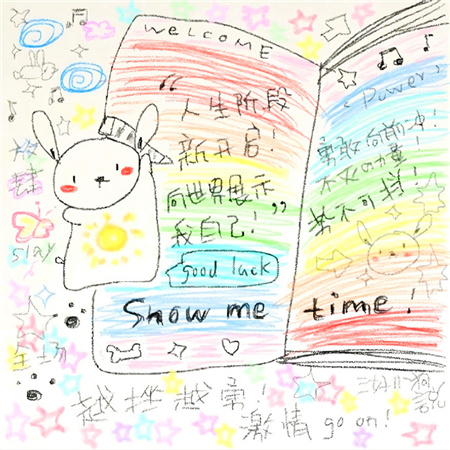 WELCOME
“人生阶段
新开启！
向世界展示
我自己！”
good luck
Show me time！
Power
勇敢向前冲！
不败的力量！
势不可挡！
slay
全场
越挫越勇！
激情 go on！